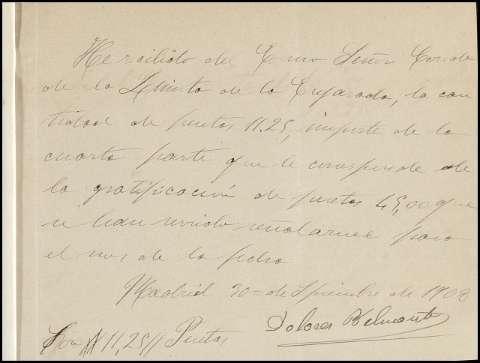 He recibido del Exmo Señor Conde
de la Quinta de la Enjarada, la can
tidad de pesetas 11.25, importe de la
cuarta parte que le corresponde de
la gratificación de pesetas 45,00 que
se han servido señalarme para
el mes de la fecha
Madrid 30 de Septiembre de 1908
Son # 11,25 // Pesetas
Dolores Belmonte